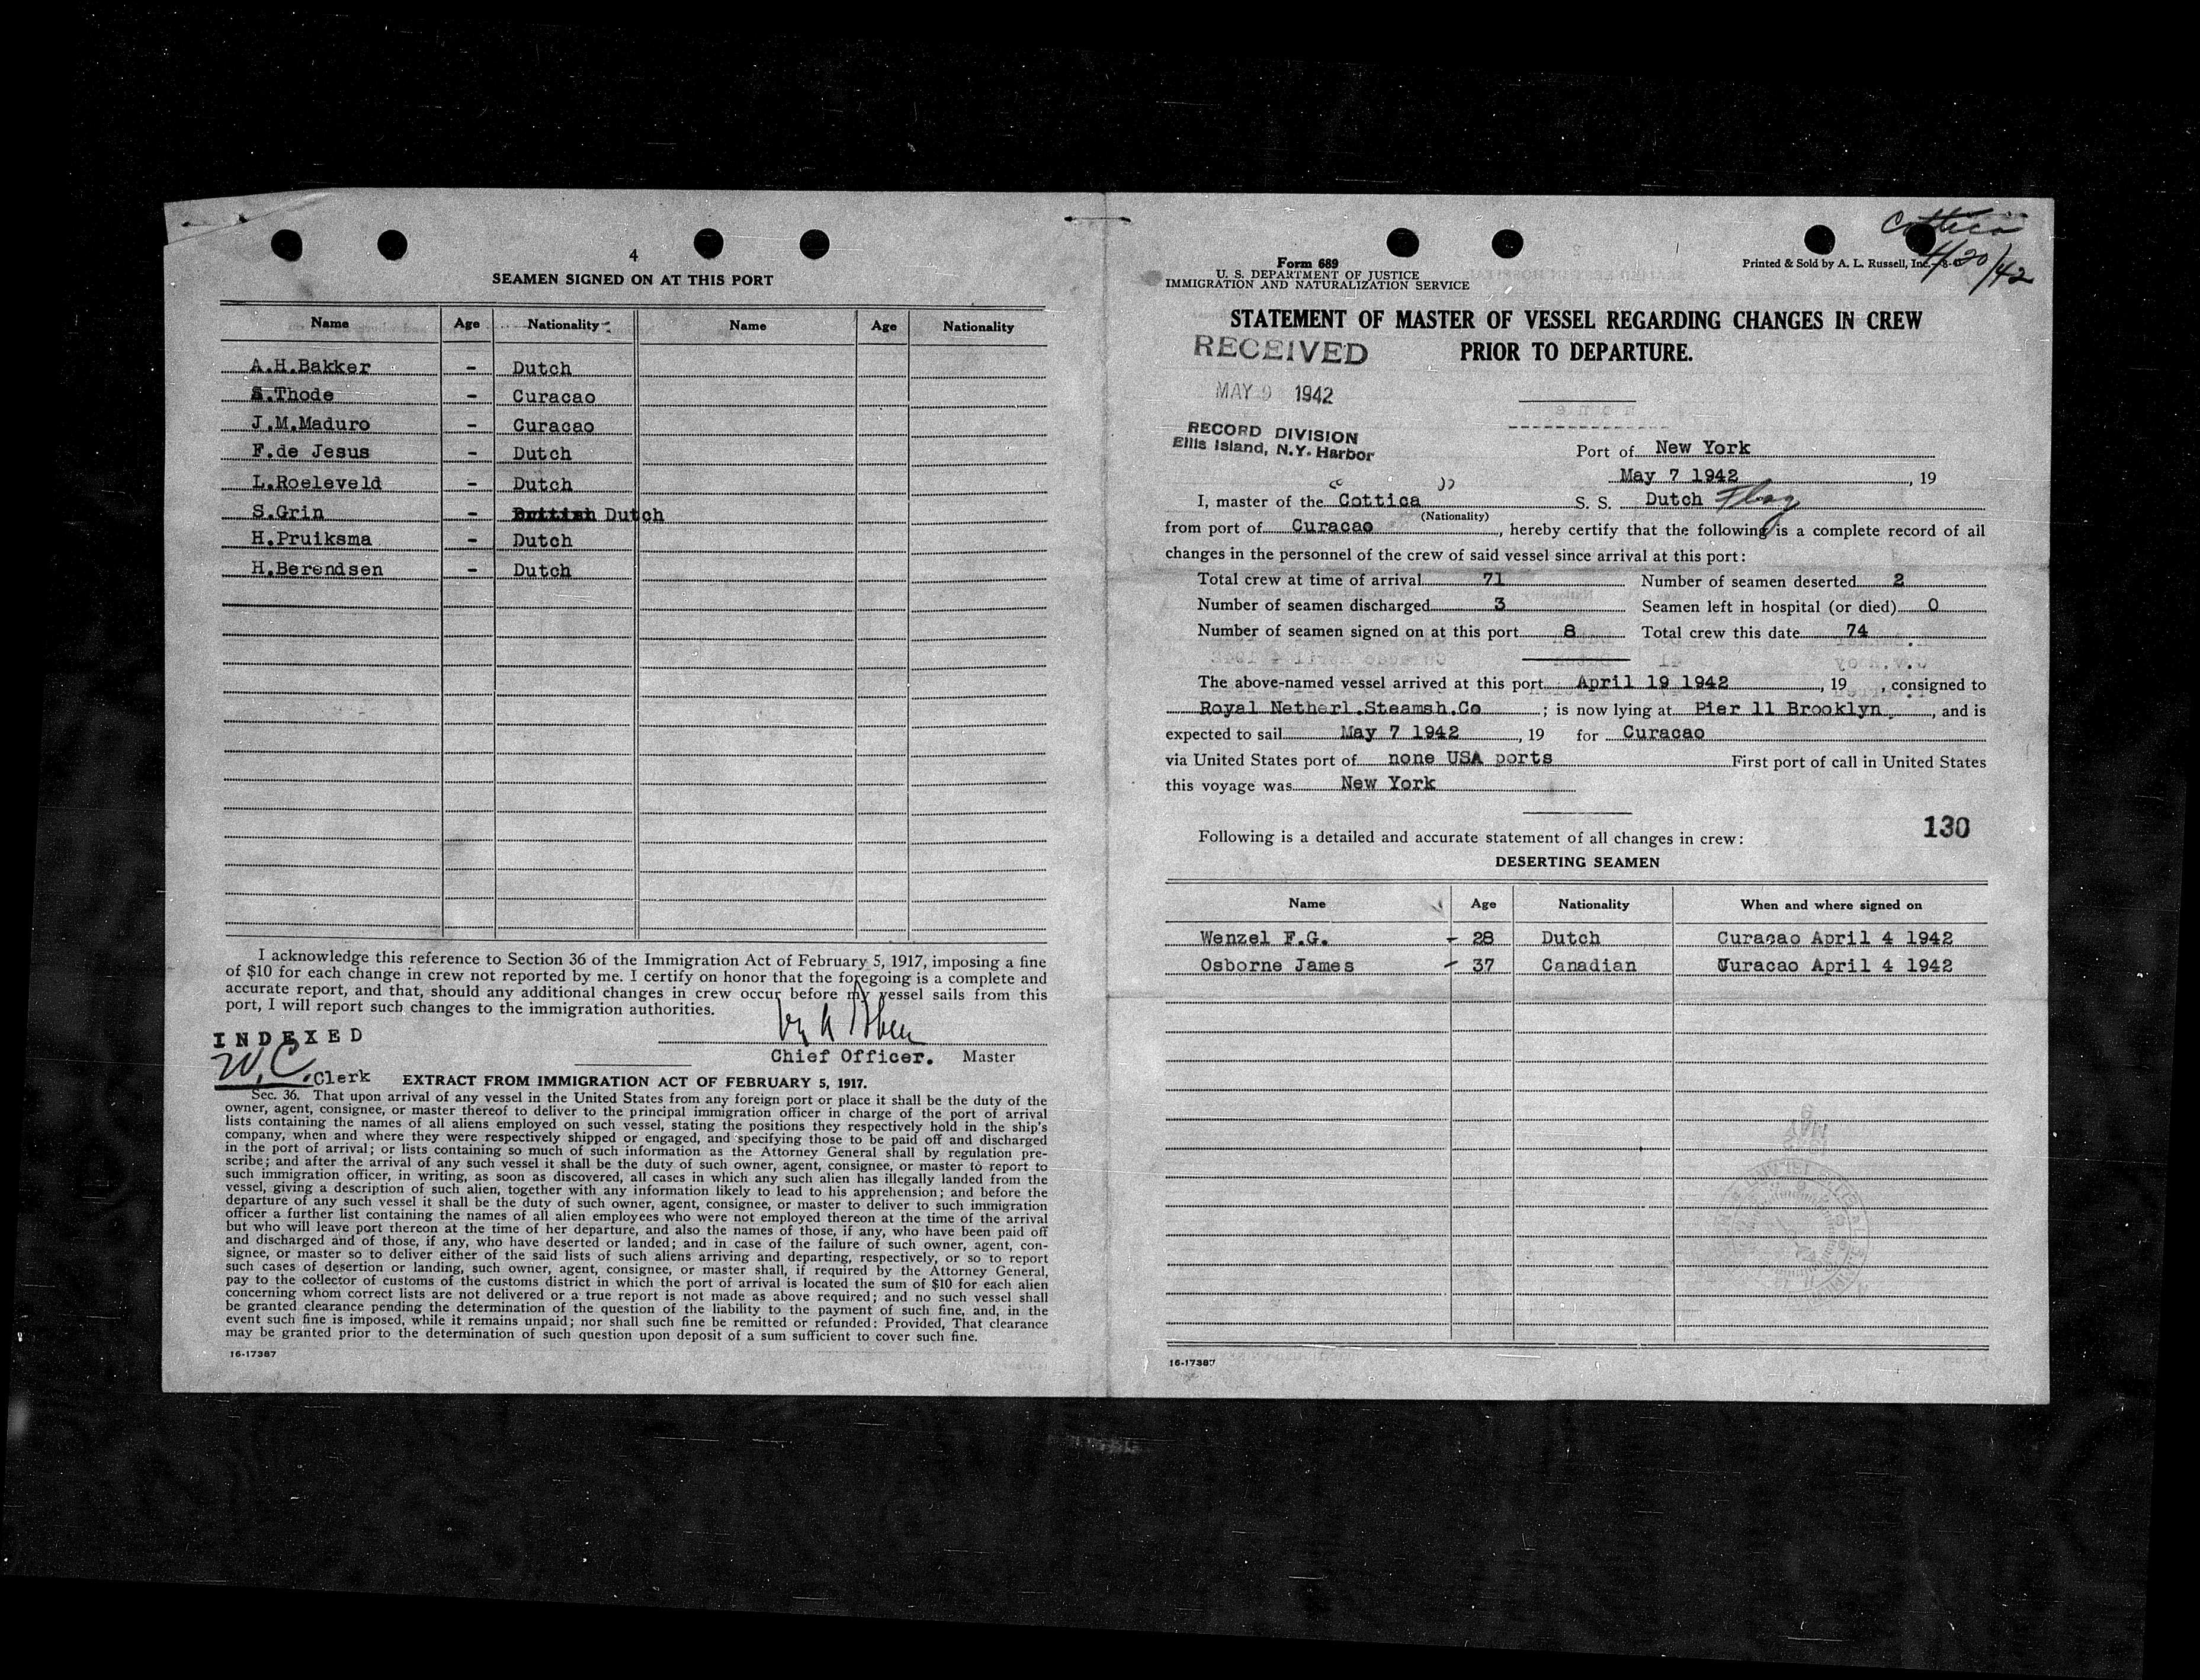 4
SEAMEN SIGNED ON AT THIS PORT
Name Age Nationality Name Age Nationality
A.H.Bakker - Dutch
S.Thode - Curacao
J.M.Maduro - Curacao
F.de Jesus - Dutch
L.Roeleveld - Dutch
S.Grin - British Dutch
H.Pruiksma - Dutch
H.Berendsen - Dutch
I acknowledge this reference to Section 36 of the Immigration Act of February 5, 1917, imposing a fine
of $10 for each change in crew not reported by me. I certify on honor that the foregoing is a complete and
accurate report, and that, should any additional changes in crew occur before my vessel sails from this
port, I will report such changes to the immigration authorities.
INDEXED
Chief Officer. Master
W.C. Clerk
EXTRACT FROM IMMIGRATION ACT OF FEBRUARY 5, 1917.
Sec. 36. That upon arrival of any vessel in the United States from any foreign port or place it shall be the duty of the
owner, agent, consignee, or master thereof to deliver to the principal immigration officer in charge of the port of arrival
lists containing the names of all aliens employed on such vessel, stating the positions they respectively hold in the ship's
company, when and where they were respectively shipped or engaged, and specifying those to be paid off and discharged
in the port of arrival; or lists containing so much of such information as the Attorney General shall by regulation pre-
scribe; and after the arrival of any such vessel it shall be the duty of such owner, agent, consignee, or master to report to
such immigration officer, in writing, as soon as discovered, all cases in which any such alien has illegally landed from the
vessel, giving a description of such alien, together with any information likely to lead to his apprehension; and before the
departure of any such vessel it shall be the duty of such owner, agent, consignee, or master to deliver to such immigration
officer a further list containing the names of all alien employees who were not employed thereon at the time of the arrival
but who will leave port thereon at the time of her departure, and also the names of those, if any, who have been paid off
and discharged and of those, if any, who have deserted or landed; and in case of the failure of such owner, agent, con-
signee, or master so to deliver either of the said lists of such aliens arriving and departing, respectively, or so to report
such cases of desertion or landing, such owner, agent, consignee, or master shall, if required by the Attorney General,
pay to the collector of customs of the customs district in which the port of arrival is located the sum of $10 for each alien
concerning whom correct lists are not delivered or a true report is not made as above required; and no such vessel shall
be granted clearance pending the determination of the question of the liability to the payment of such fine, and, in the
event such fine is imposed, while it remains unpaid; nor shall such fine be remitted or refunded: Provided, That clearance
may be granted prior to the determination of such question upon deposit of a sum sufficient to cover such fine.
16-17387
Cottica
4/20/42
Form 689
U. S. DEPARTMENT OF JUSTICE
IMMIGRATION AND NATURALIZATION SERVICE
Printed & Sold by A. L. Russell, Inc.
STATEMENT OF MASTER OF VESSEL REGARDING CHANGES IN CREW
PRIOR TO DEPARTURE.
RECEIVED
MAY 9 1942
RECORD DIVISION
Ellis Island, N.Y. Harbor
Port of New York
May 7 1942, 19
I, master of the "Cottica" S. S. Dutch Flag
(Nationality)
from port of Curacao, hereby certify that the following is a complete record of all
changes in the personnel of the crew of said vessel since arrival at this port:
Total crew at time of arrival 71 Number of seamen deserted 2
Number of seamen discharged 3 Seamen left in hospital (or died) 0
Number of seamen signed on at this port 8 Total crew this date 74
The above-named vessel arrived at this port April 19 1942, 19 , consigned to
Royal Netherl.Steamsh.Co ; is now lying at Pier 11 Brooklyn, and is
expected to sail May 7 1942, 19 for Curacao
via United States port of none USA ports First port of call in United States
this voyage was New York
130
Following is a detailed and accurate statement of all changes in crew:
DESERTING SEAMEN
Name Age Nationality When and where signed on
Wenzel F.G. - 28 Dutch Curacao April 4 1942
Osborne James - 37 Canadian Curacao April 4 1942
16-17387